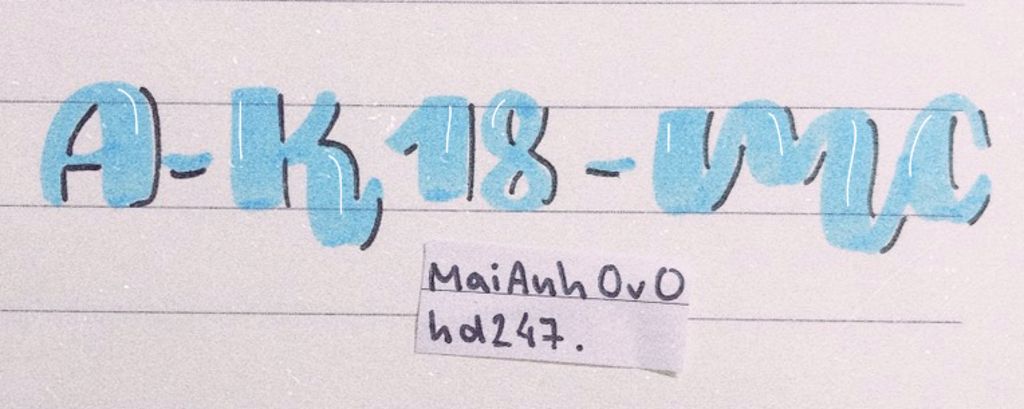 A-K18-MC
MaiAnh OvO
hd247.